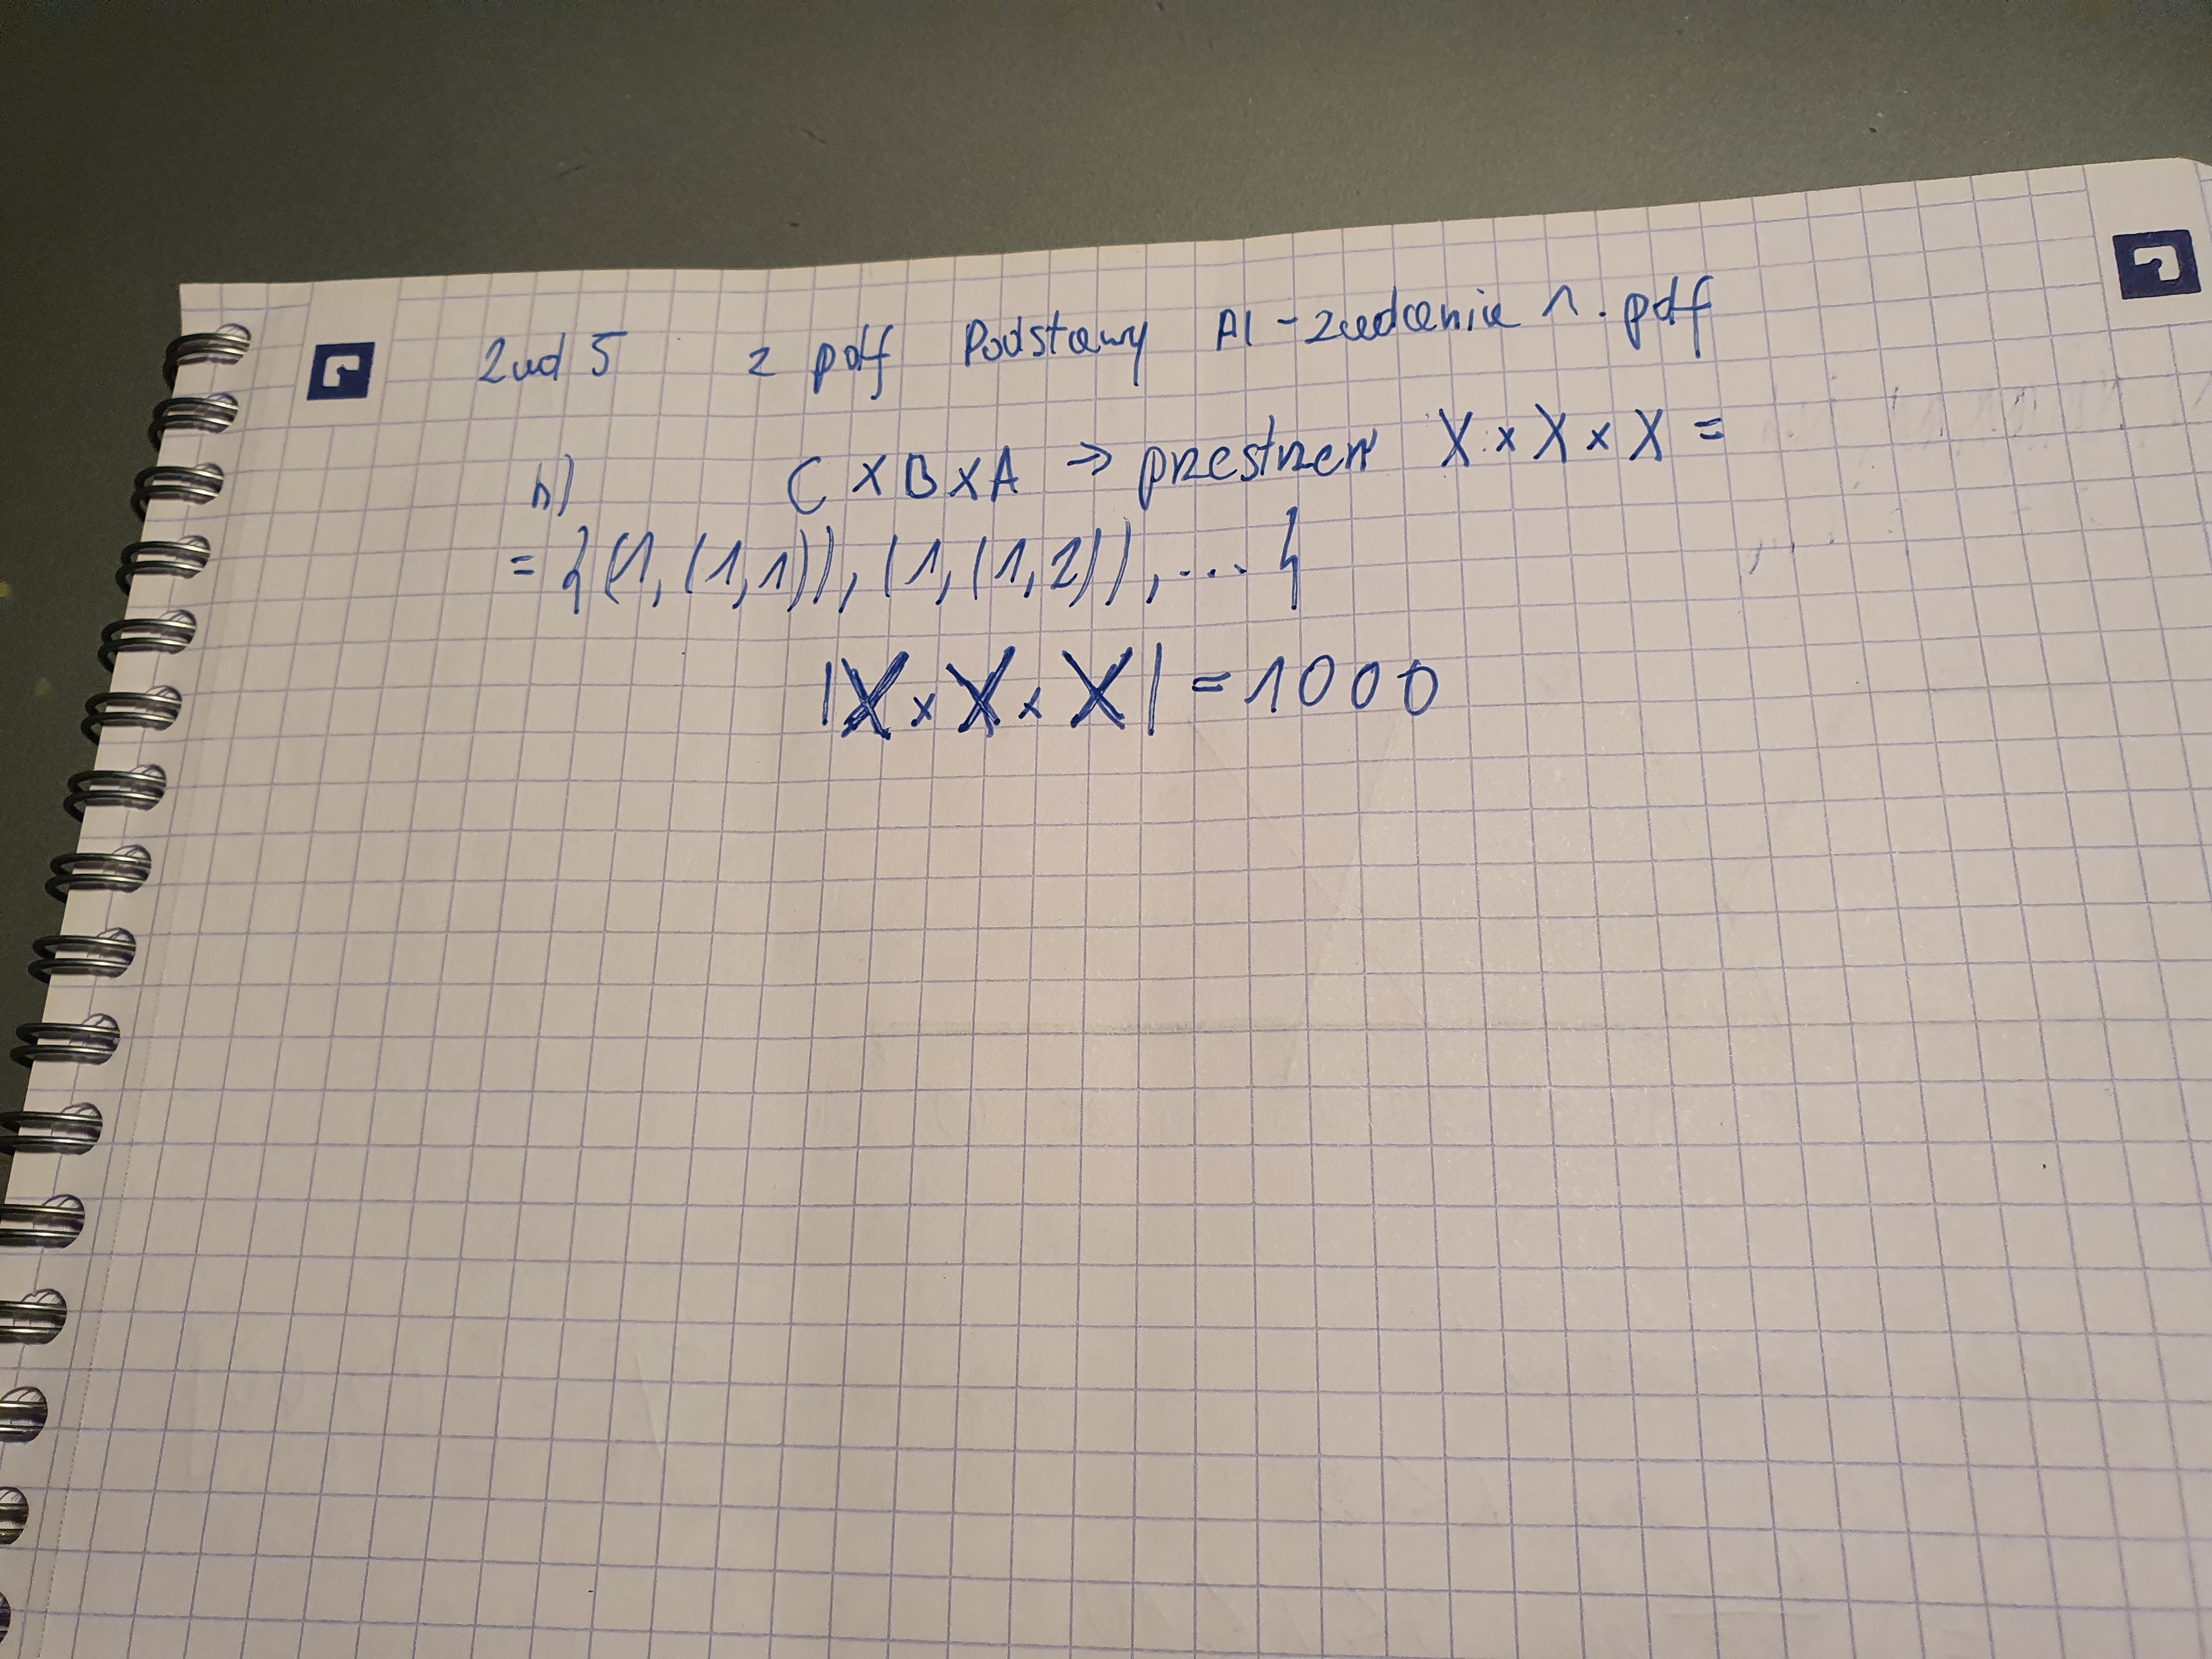 Zad 5 z pdf Podstawy AI - zadania 1.pdf
h) C × B × A → przestrzeń X × X × X =
= {(1, (1,1)), (1, (1,2)), ... }
|X × X × X| = 1000